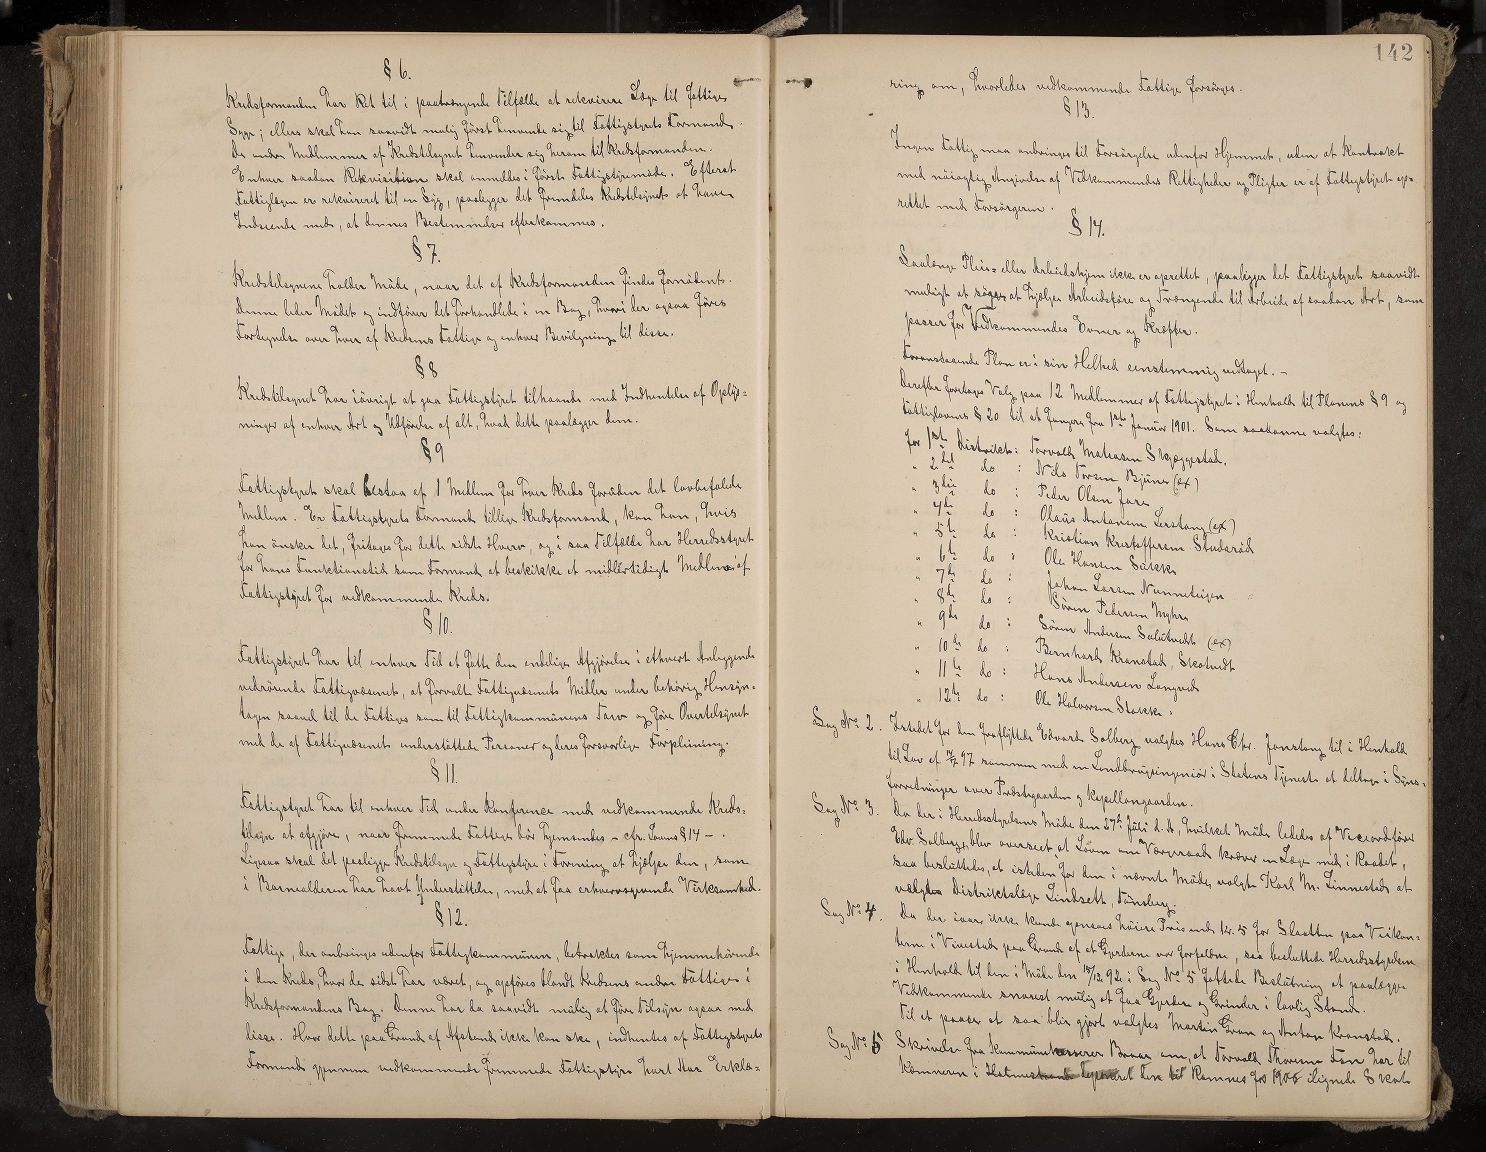 § 6.
Kredsformanden har Ret til i paatrængende Tilfælde at rekvirere Læge til fattige
Syge; ellers skal han saavidt mulig først henvende sig til Fattigstyrets Formand.
De andre Medlemmer af Kredstilsynet henvender sig herom til Kredsformanden.
Enhver saadan Rekvisition skal anmeldes i første Fattigstyremøde. Efterat
Fattiglægen er rekvireret til en Syg, paaligger det fremdeles Kredstilsynet at have
Indseende med, at dennes Bestemmelser efterkommes.
§ 7.
Kredstilsynene holder Møde, naar det af Kredsformanden findes fornødent.
Denne leder Mødet og indfører det forhandlede i en Bog, hvori der ogsaa føres
Fortegnelse over hver af Kredsens Fattige og enhver Bevilgning til disse.
§ 8
Kredstilsynet har iøvrigt at gaa Fattigstyret tilhaande med Indhentelse af Oplys=
ninger af enhver Art og Udførelse af alt, hvad dette paalægger dem.
§ 9
Fattigstyret skal bestaa af 1 Medlem for hver Kreds foruden det lovbefalede
Medlem. Er Fattigstyrets Formand tillige Kredsformand, kan han, hvis
han ønsker det, fritages for dette sidste Hverv, og i saa Tilfælde har Herredsstyret
for hans Funktionstid som Formand at beskikke et midlertidigt Medlem af
Fattigstyret for vedkommende Kreds.
§ 10.
Fattigstyret har til enhver Tid at fatte den endelige Afgjørelse i ethvert Anliggende
vedrørende Fattigvæsenet, at forvalte Fattigvæsenets Midler under behørig Hensyn=
tagen saavel til de Fattiges som til Fattigkommunens Tarv og føre Overtilsynet
med de af Fattigvæsenet understøttede Personer og deres forsvarlige Forpleining.
§ 11.
Fattigstyret har til enhver Tid under Konference med vedkommende Kreds=
tilsyn at afgjøre, naar fremmede Fattige bør hjemsendes – cfr. Lovens § 14 – .
Ligesaa skal det paaligge Kredstilsyn og Fattigstyre i Forening at hjælpe dem, som
i Barnealderen har havt Understøttelse, med at faa erhvervsgivende Virksomhed.
§ 12.
Fattige, der anbringes udenfor Fattigkommunen, betragtes som hjemmehørende
i den Kreds, hvor de sidst har været, og opføres blandt Kredsens andre Fattige i
Kredsformandens Bog. Denne har da saavidt mulig at føre Tilsyn ogsaa med
disse. Hvor dette paa Grund af Afstand ikke kan ske, indhentes af Fattigstyrets
Formand gjennem vedkommende fremmede Fattigstyre hvert Aar Erklæ=
142
ring om, hvorledes vedkommende Fattige forsørges.
§ 13.
Ingen Fattig maa anbringes til Forsørgelse udenfor Hjemmet, uden at Kontrakt
med nøiagtig Angivelse af Vedkommendes Rettigheder og Pligter er af Fattigstyret op=
rettet med Forsørgeren.
§ 14.
Saalænge Pleie= eller Arbeidshjem ikke er oprettet, paaligger det Fattigstyret saavidt
muligt at søge at hjælpe Arbeidsføre og Trængende til Arbeide af saadan Art, som
passer for Vedkommendes Evner og Kræfter.
Foranstaaende Plan er i sin Helhed enstemmig vedtaget. –
Derefter foretages Valg paa 12 Medlemmer af Fattigstyret i Henhold til Planens § 9 og
Fattiglovens § 20 til at fungere fra 1ste Januar 1901. Som saadanne valgtes:
for 1ste Distrikt: Torvald Mathisen Skjeggestad.
" 2det do : Nils Torsen Bjune (ex)
" 3die do : Peder Olsen Jare
" 4de do : Olaus Antonsen Lerstang (ex)
" 5te do : Kristian Kristoffersen Studsrød
" 6te do : Ole Hansen Sukke
" 7de do : Johan Larsen Nunneteigen
" 8de do : Søren Pedersen Myhre
" 9de do : Søren Andersen Solutvedt (ex)
" 10de do : Bernhard Kranstad, Skotvedt
" 11te do : Hans Andersen Langved
" 12te do : Ole Halvorsen Stokke.
Sag No 2. Istedet for den fraflyttede Edvard Solberg valgtes Hans Chr. Jonstang til i Henhold
til Lov af 97 sammen med en Landbrugsingeniør i Statens Tjeneste at deltage i Syns=
forretninger over Præstegaarden og Kapellangaarden.
Sag No 3. Da der i Herredsstyrelsens Møde den 27de Juli d. A, hvilket Møde lededes af Viceordfører
Edv. Solberg, blev overseet, at Loven om Værgeraad kræver en Læge med i Raadet,
saa besluttedes, at istedenfor den i nævnte Møde valgte Karl M. Linnestad at
vælge Distriktslæge Lindsett, Tønsberg.
Sag No 4. Da der iaar ikke kunde opnaaes høiere Pris end Kr. 5 for Slaatten paa Veikan=
terne i Vivestad paa Grund af at Gjerderne var forfaldne, saa besluttede Herredsstyrelsen
i Henhold til den i Møde den 15/12 92 i Sag No 5 fattede Beslutning at paalægge
Vedkommende snarest mulig at faa Gjerder og Grinder i lovlig Stand.
Til at passe at saa blir gjort valgtes Martin Gran og Anton Kranstad.
Sag No 5 Skrivelse fra Kommunekasserer Bonar om, at Torvald Thoresen Fon har til
Kæmneren i Holmestrand deponeret Fem til Ramnes for 1900 ilignede Skat